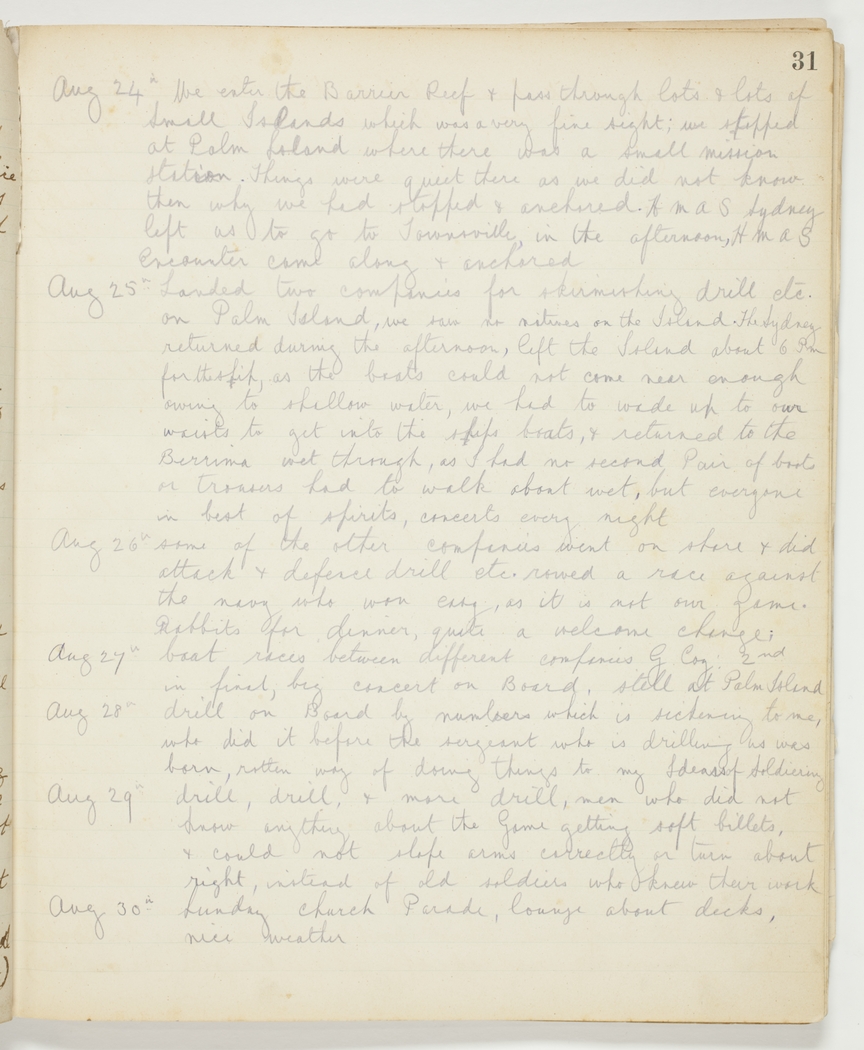 31
Aug 24th We enter the Barrier Reef & pass through lots & lots of
Small Islands which was a very fine sight; we stopped
at Palm Island where there was a small mission
station. Things were quiet there as we did not know
then why we had stopped & anchored. H M A S Sydney
left us to go to Townsville, in the afternoon, H M A S
Encounter came along & anchored
Aug 25th Landed two companies for skirmishing drill etc.
on Palm Island, we saw no natives on the Island. The Sydney
returned during the afternoon, left the Island about 6 Pm
for the ship, as the boats could not come near enough
owing to shallow water, we had to wade up to our
waists to get into the ships boats, & returned to the
Berrima wet through, as I had no second Pair of boots
or trousers had to walk about wet, but everyone
in best of spirits, concerts every night
Aug 26th some of the other companies went on shore & did
attack & defence drill etc. rowed a race against
the navy who won easy, as it is not our game.
Rabbits for dinner, quite a welcome change;
Aug 27th boat races between different companies G Coy. 2nd
in final, big concert on Board. still at Palm Island
Aug 28th drill on Board by numbers which is sickening to me,
who did it before the sergeant who is drilling us was
born, rotten way of doing things to my Ideas of Soldiering
Aug 29th drill, drill, & more drill, men who did not
know anything about the Game getting soft billets,
& could not slope arms correctly or turn about
right, instead of old soldiers who knew their work
Aug 30th Sunday church Parade, lounge about decks,
nice weather